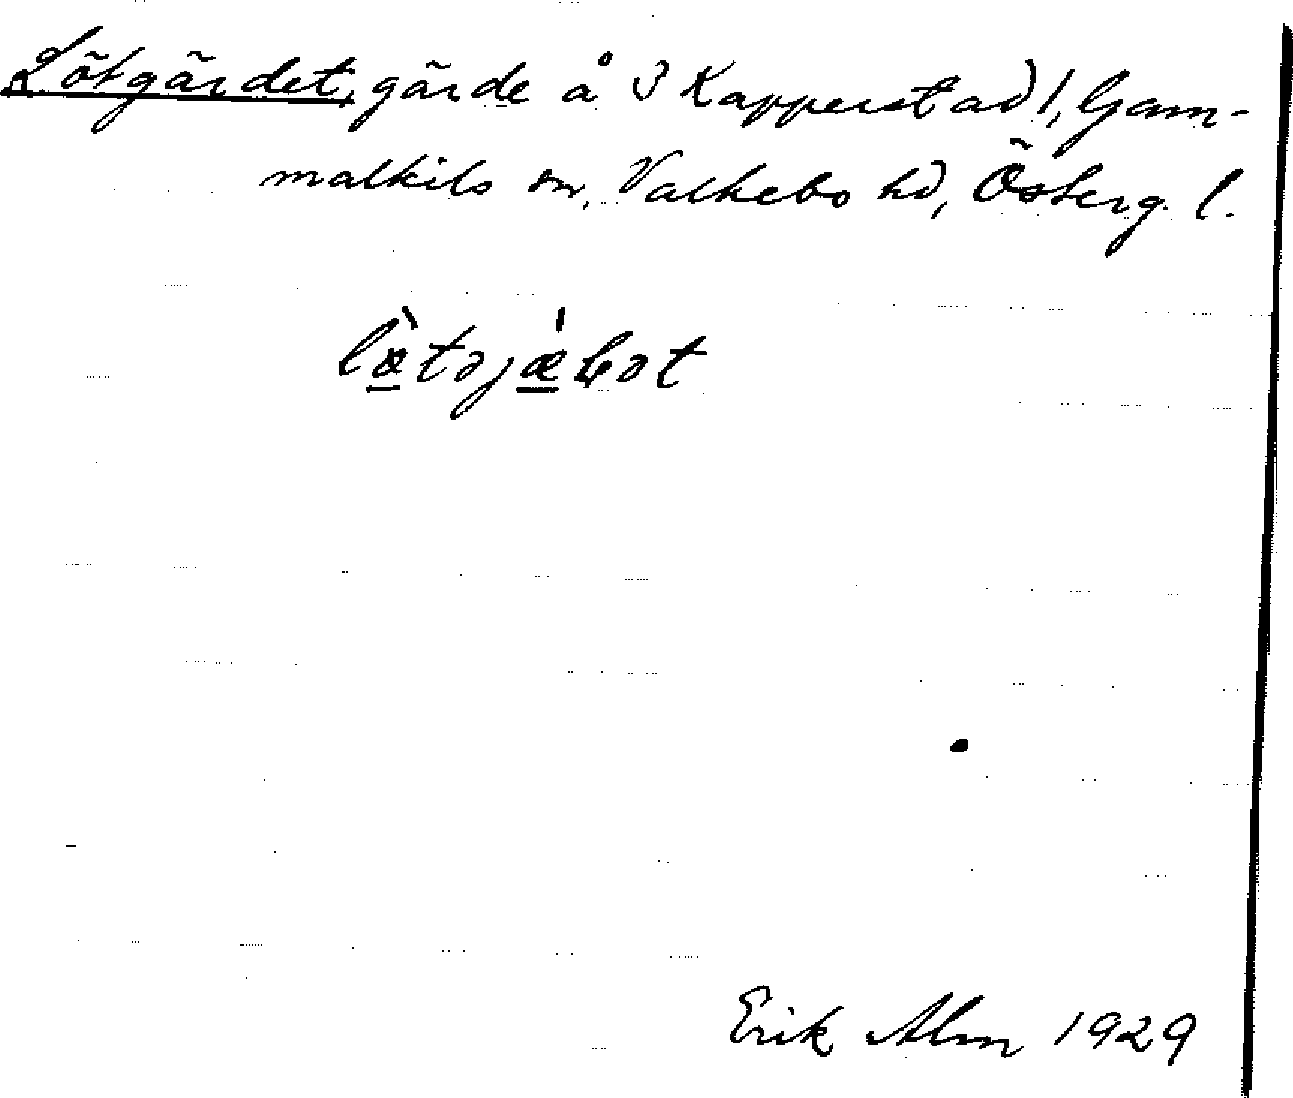 Lötgärdet, gärde å 3 Kapperstad!, Gam-
malkils sn, Valkebo hd, Österg. l.
Erik Alm 1929